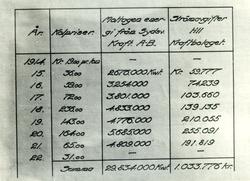 År. Kolpriser. Mottagen ener- Strömavgifter
gi från Sydsv. till
Kraft. A-B. Kraftbolaget.
1914. Kr. 19.00 pr. ton — —
15. 36.00 2.678.000 Kwt Kr. 59.777
16. 59.00 3.254.000 74.239
17. 72.00 3.801.000 103.660
18. 235.00 4.633.000 139.135
19. 143.00 4.776.000 210.055
20. 164.00 5.685.000 255.091
21. 65.00 4.809.000 191.819
22. 31.00 — —
Summa 29.634.000 Kwt. 1.033.776 kr.